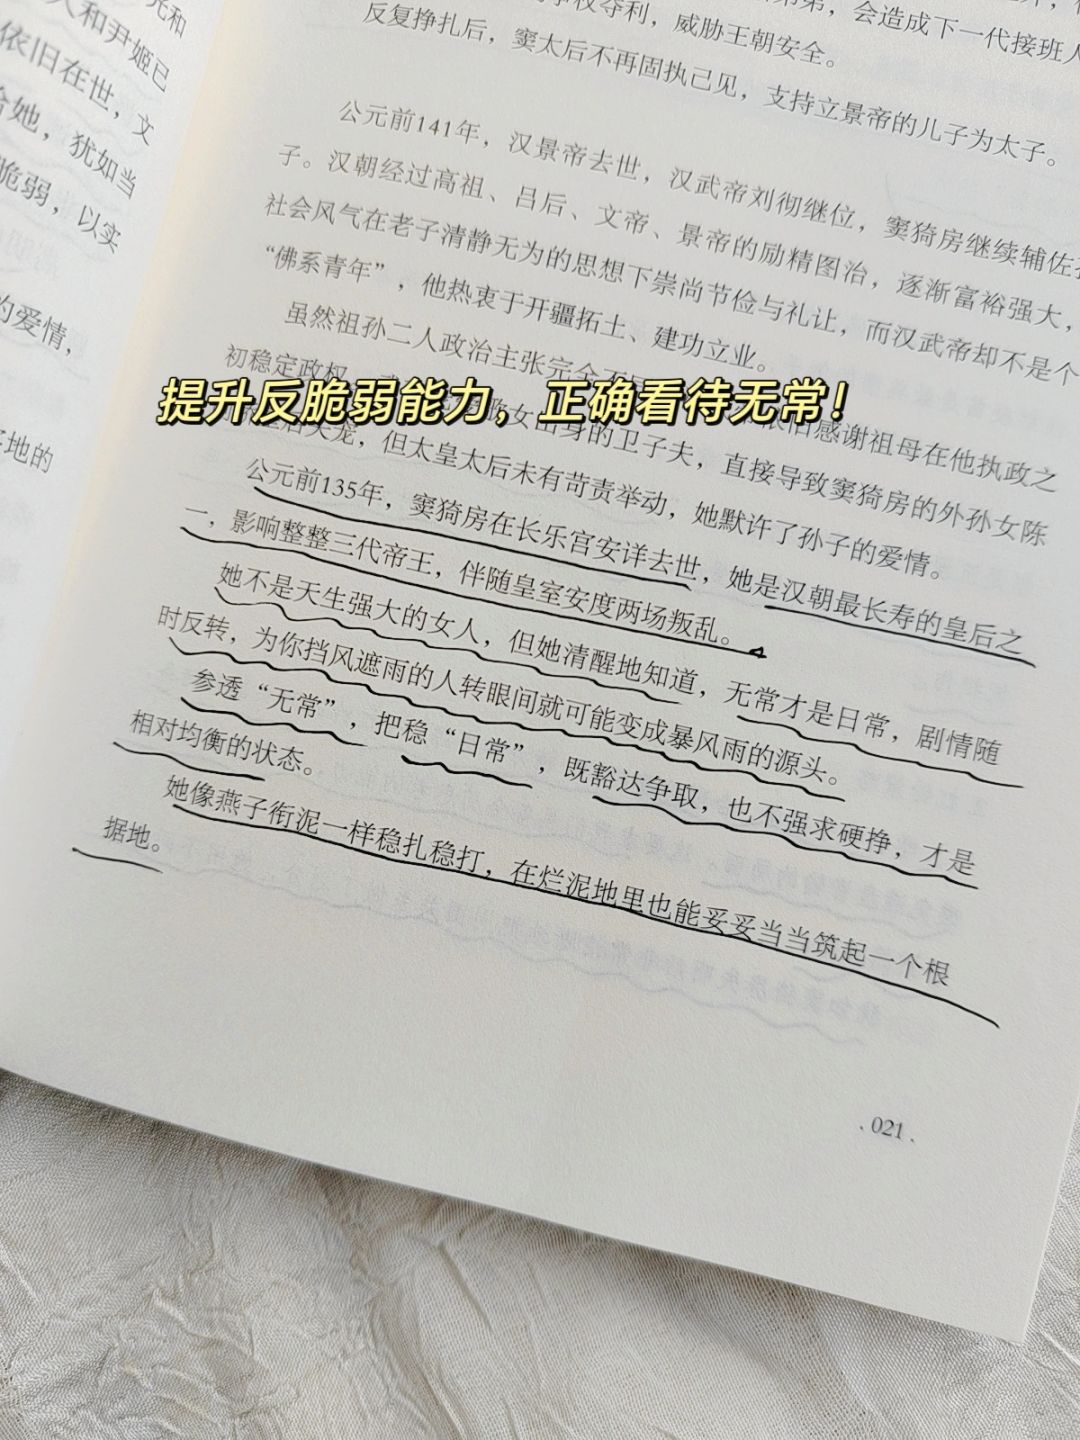 人和尹姬已
依旧在世，文
给她，犹如当
脆弱，以实
的爱情，
地的
争权夺利，威胁王朝安全。
会造成下一代接班人
反复挣扎后，窦太后不再固执己见，支持立景帝的儿子为太子。
公元前141年，汉景帝去世，汉武帝刘彻继位，窦猗房继续辅佐
子。汉朝经过高祖、吕后、文帝、景帝的励精图治，逐渐富裕强大，
社会风气在老子清静无为的思想下崇尚节俭与礼让，而汉武帝却不是个
“佛系青年”，他热衷于开疆拓土、建功立业。
虽然祖孙二人政治主张完全不
依旧感谢祖母在他执政之
初稳定政权
提升反脆弱能力，正确看待无常！
女出身的卫子夫，直接导致窦猗房的外孙女陈
失宠，但太皇太后未有苛责举动，她默许了孙子的爱情。
公元前135年，窦猗房在长乐宫安详去世，她是汉朝最长寿的皇后之
一，影响整整三代帝王，伴随皇室安度两场叛乱。
她不是天生强大的女人，但她清醒地知道，无常才是日常，剧情随
时反转，为你挡风遮雨的人转眼间就可能变成暴风雨的源头。
参透“无常”，把稳“日常”，既豁达争取，也不强求硬挣，才是
相对均衡的状态。
她像燕子衔泥一样稳扎稳打，在烂泥地里也能妥妥当当筑起一个根
据地。
· 021 ·